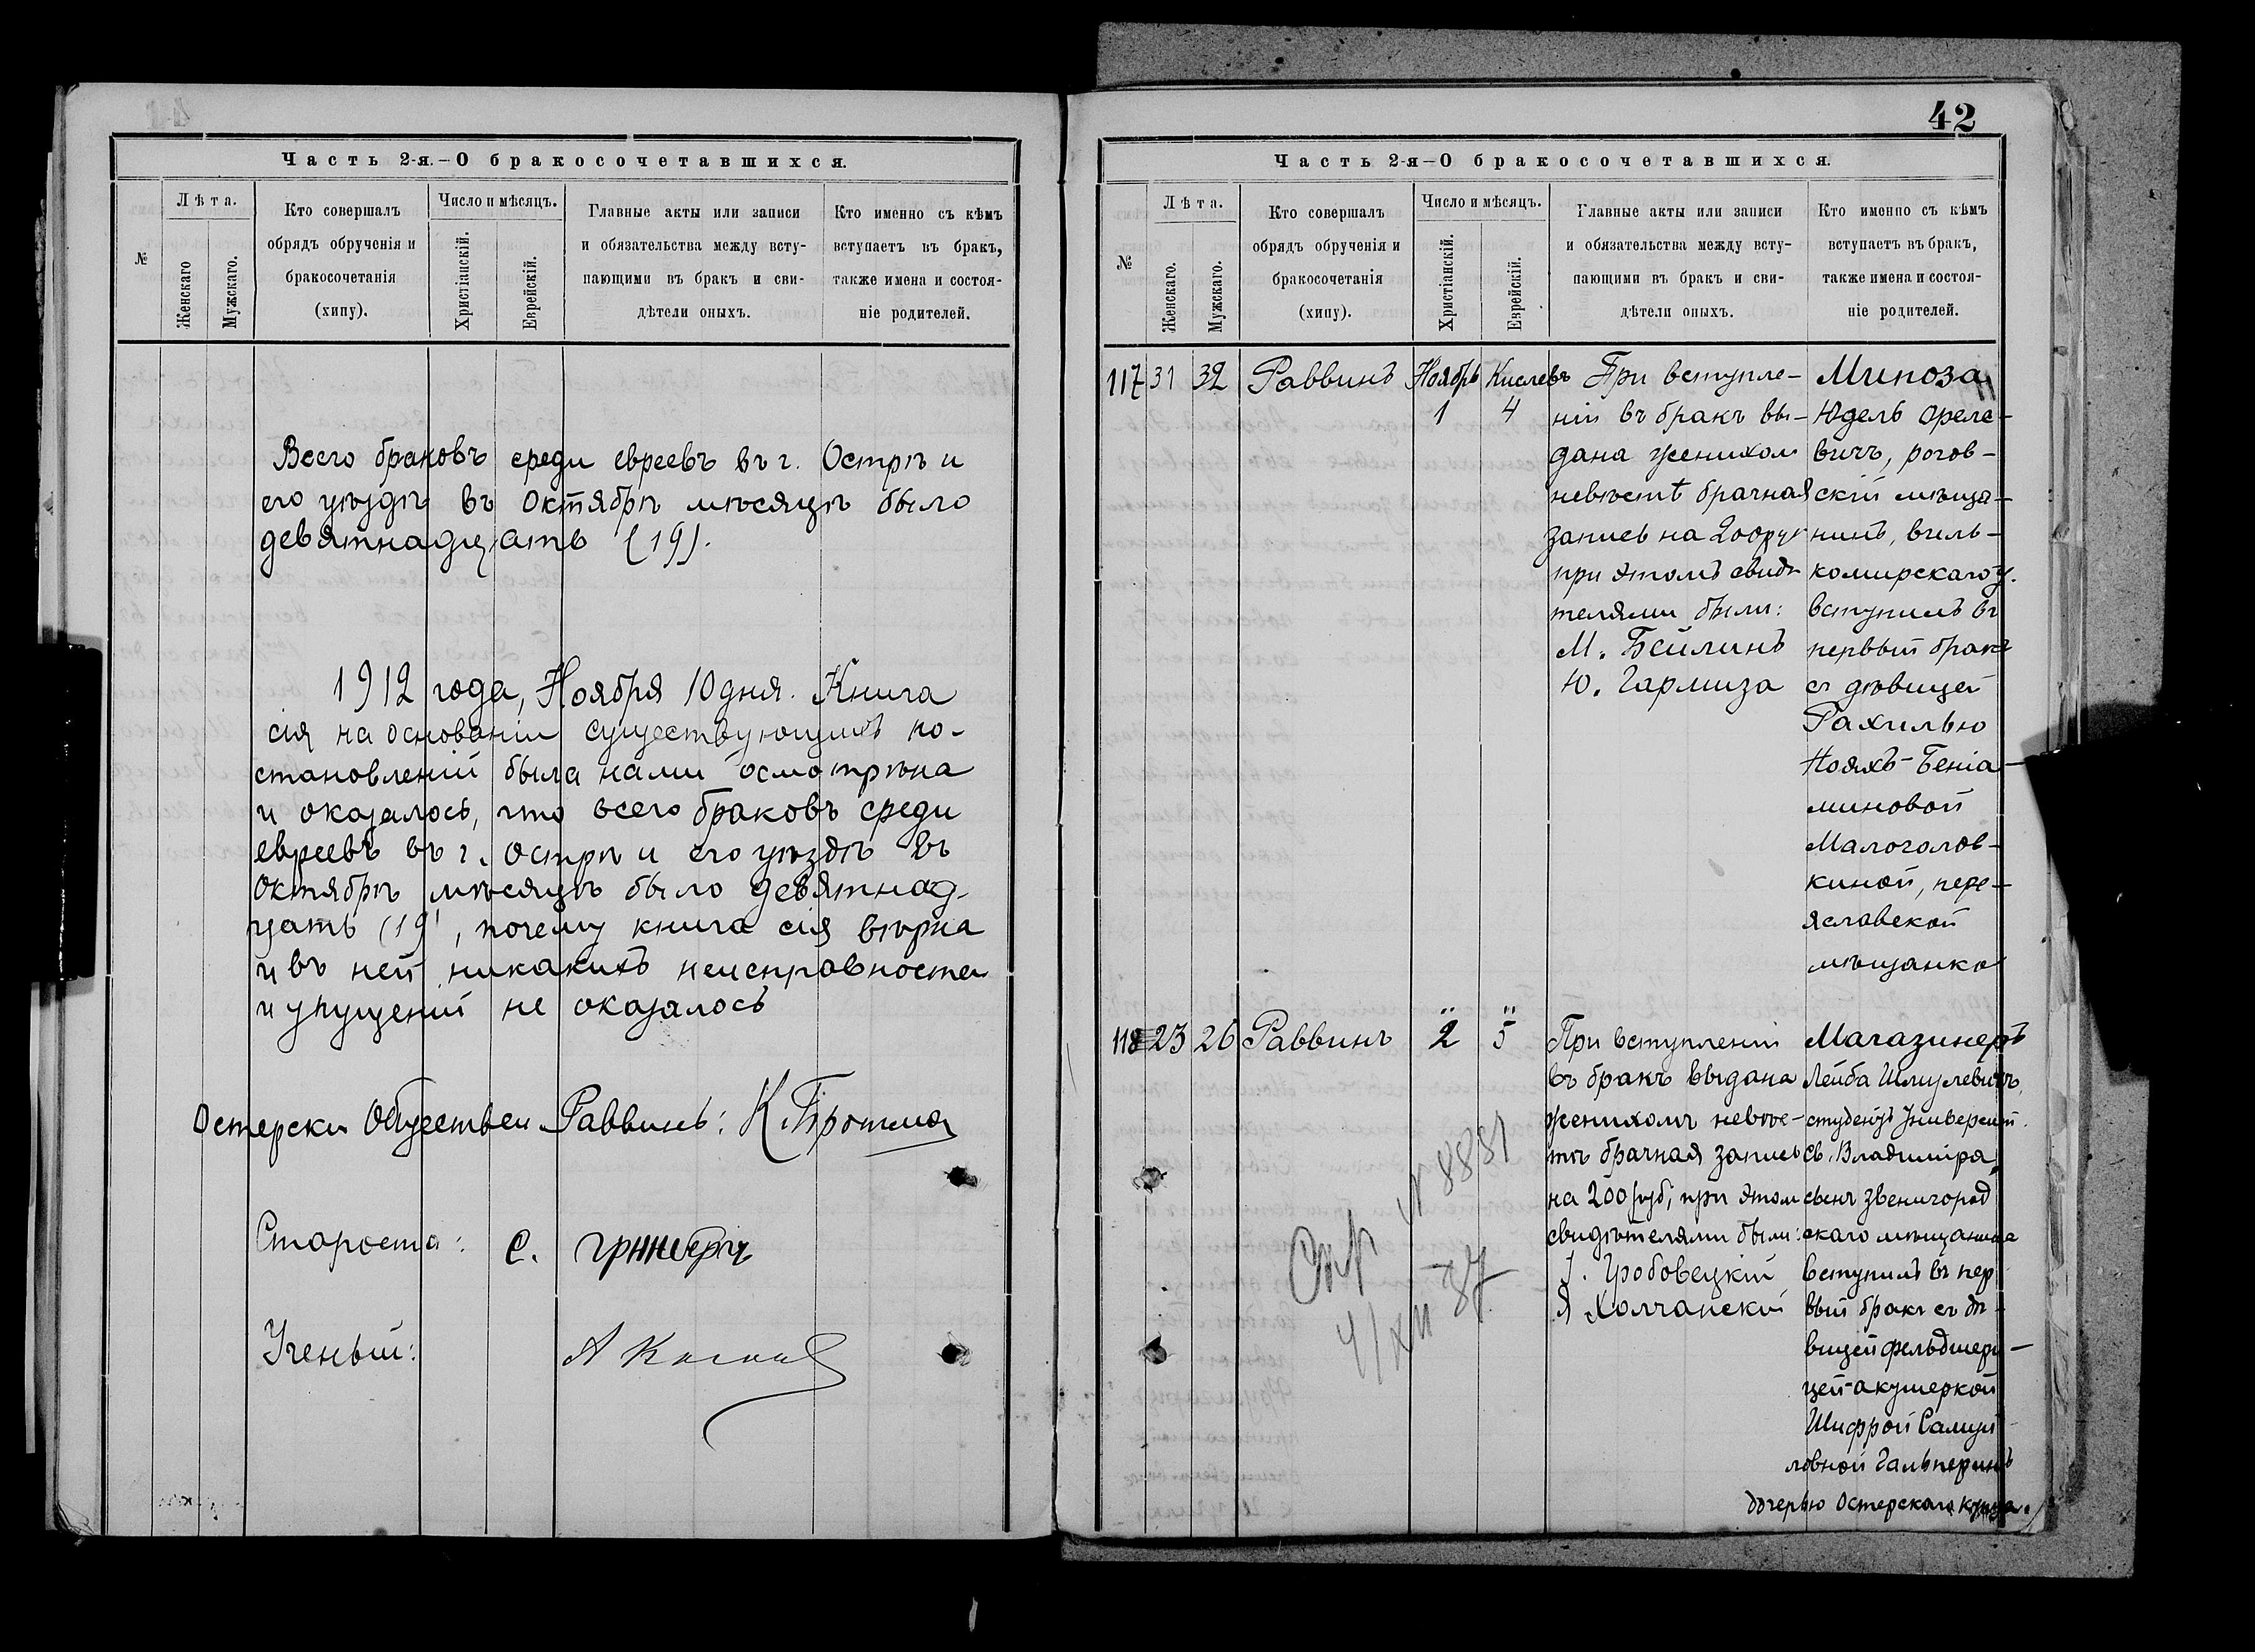 Часть 2-я.—О бракосочетавшихся.
№
Лѣта.
Женскаго
Мужскаго.
Кто совершалъ
обрядъ обрученія и
бракосочетанія
(хипу).
Число и мѣсяцъ.
Христіанскій.
Еврейскій.
Главные акты или записи
и обязательства между всту-
пающими въ бракъ и сви-
дѣтели оныхъ.
Кто именно съ кѣмъ
вступаетъ въ бракъ,
также имена и состоя-
ніе родителей.
Всего браковъ среди евреевъ въ г. Острѣ и
его уѣздѣ въ Октябрѣ мѣсяцѣ было
девятнадцать (19).
1912 года, Ноября 10 дня. Книга
сія на основаніи существующихъ по-
становленій была нами осмотрѣна
и оказалось, что всего браковъ среди
евреевъ въ г. Острѣ и его уѣздѣ въ
Октябрѣ мѣсяцѣ было девятнад-
цать (19), почему книга сія вѣрна
и въ ней никакихъ неисправностей
и упущеній не оказалось
Остерскій Обществен Раввинъ:
Староста: С. Гринберг
Ученый:
42
Часть 2-я—О бракосочетавшихся.
№
Лѣта.
Женскаго.
Мужскаго.
Кто совершалъ
обрядъ обрученія и
бракосочетанія
(хипу).
Число и мѣсяцъ.
Христіанскій.
Еврейскій.
Главные акты или записи
и обязательства между всту-
пающими въ бракъ и сви-
дѣтели оныхъ.
Кто именно съ кѣмъ
вступаетъ въ бракъ,
также имена и состоя-
ніе родителей.
117 31 32 Раввинъ Ноябрь 1 Кислевъ 4
При вступле-
ніи въ бракъ вы-
дана женихом
невѣстѣ брачная
запись на 200 ру
при этомъ свидѣ
телями были:
М. Бейлинъ
Ю. Гармиза
Мипоза
Юдель Ореле-
вичъ, рогов-
скій мѣща-
нинъ, виль-
комирскаго у.
вступилъ въ
первый бракъ
съ дѣвицей
Рахилью
Нояхъ-Беніа-
миновой
Малоголов-
киной, пере-
яславской
мѣщанкой
118 23 26 Раввинъ " 2 " 5
При вступленіи
въ бракъ выдана
женихомъ невѣс-
тѣ брачная запись
на 200 руб; при этом
свидѣтелями были:
Гробовецкій
Я Холчанскій
Магазинеръ
Лейба Шмулевичъ,
студентъ Университ.
Св. Владиміра,
сынъ звенигород
скаго мѣщанина
вступилъ въ пер
вый бракъ съ дѣ-
вицей фельдшери-
цей-акушеркой
Шифрой Самуи-
ловной Гальперинъ
дочерью Остерскаго купца.
№ 8881
4/XII 37